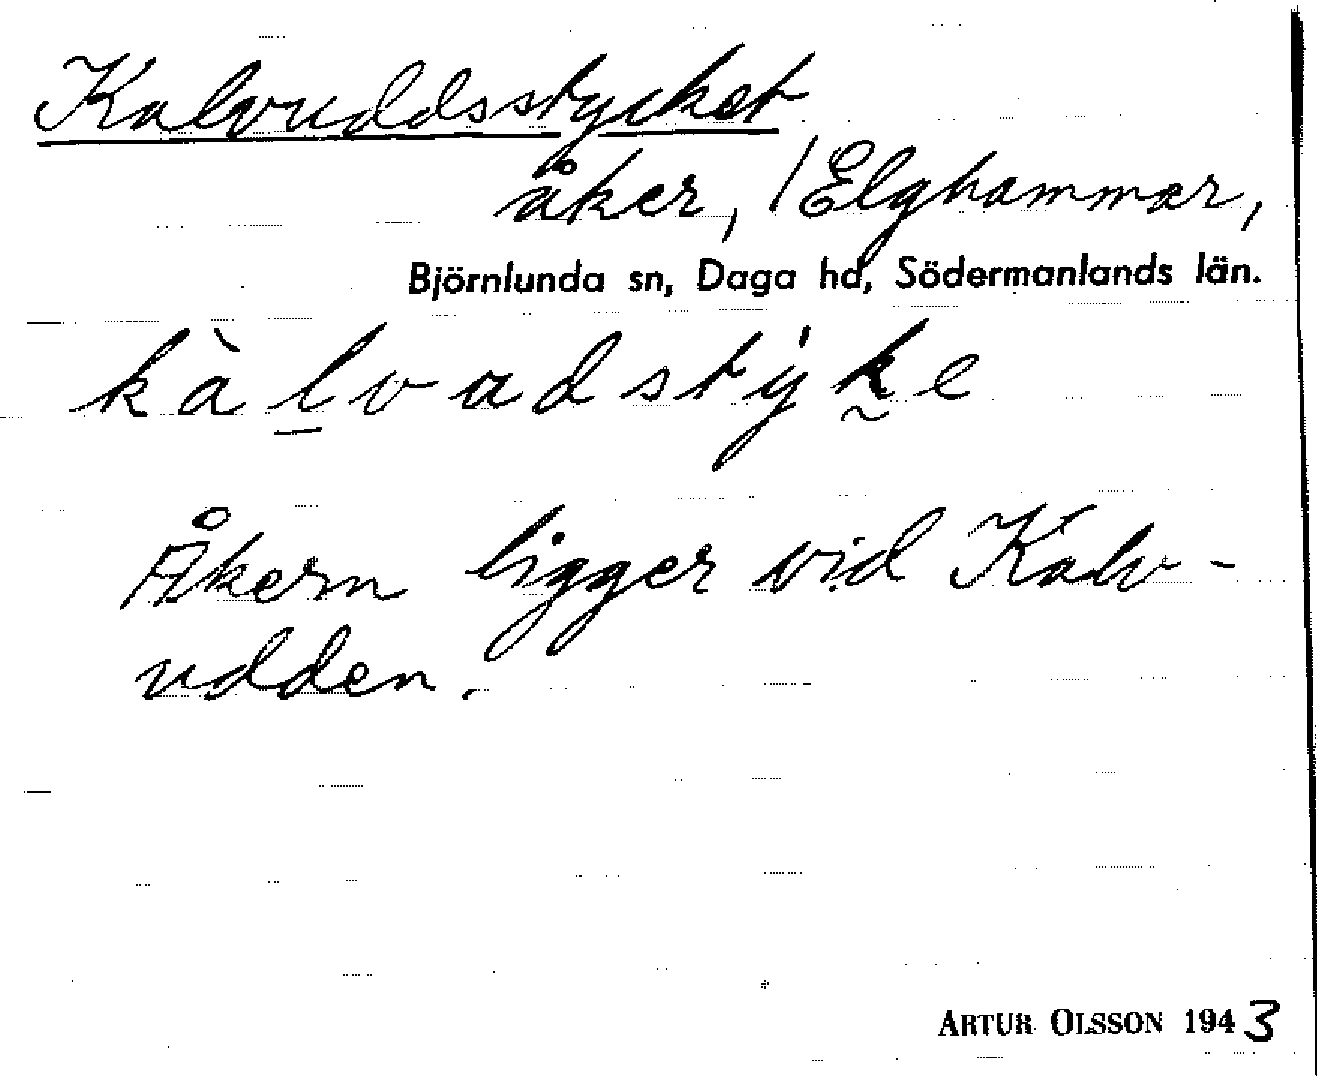 Kalvuddsstycket
åker, /Elghammar,
Björnlunda sn, Daga hd, Södermanlands län.
kàl̲vadstẏk̰e
Åkern ligger vid Kalv-
udden.
ARTUR OLSSON 1943